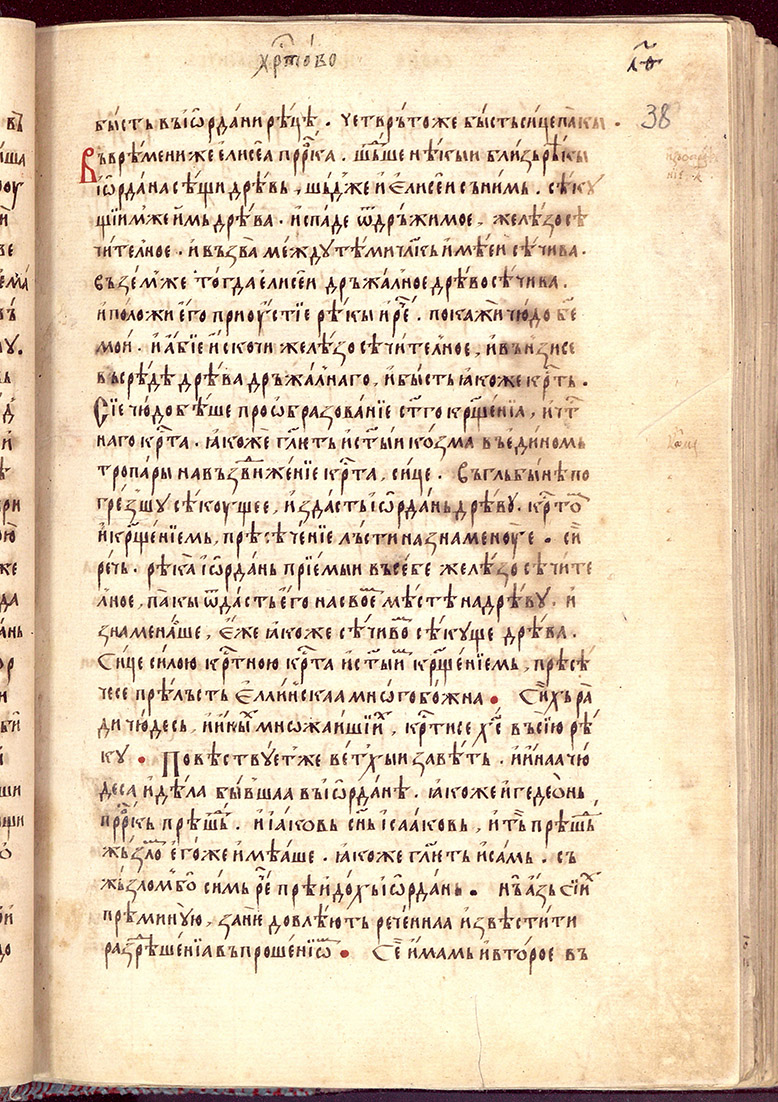 хрⷭ҇то́во
л҃ѳ
38
бы́сть въ і҆ѡрда́ни рѣцѣ̀ . четврьтоже бы́сть си́це па́кы .
Въ врѣмени же є҆лисе́а прⷪ҇рка . шь́дше нѣ́кыи бли́зь рѣкы̀
і҆ѡрда́на сѣщи дрѣ́вь , шь́дже и҆ є҆лисе́и съ ни́мь . сѣкꙋ́
щіи́мже и҆̀мь дрѣ́ва . и҆спа́де ѿ дръжимое , желѣ́зо сѣ
чи́телное . и҆ възва̀ ме́ждꙋ тѣ́ми
въземже тогда̀ є҆лисе́и дръжа́лное дрѣ́во сѣ́чива .
и҆ положи є҆го̀ при ᲂу҆́стїе рѣкы̀ и҆ рⷱ҇е . покажѝ чю́до бж҃е
мои́ . и҆ а҆́бїе и҆скочѝ желѣ́зо сѣчи́телное , и҆ въ́нзисе
въсрѣ́дѣ дрѣ́ва дръжа́лнаго , и҆ бы́сть ꙗ҆́коже крⷭ҇ть .
Сїе́ чю́до бѣ́ше проѡбразова́нїе ст҃го крⷳ҇щенїа , и҆ чⷭ҇т
наго крⷭ҇та . ꙗ҆́коже гл҃ѥть и҆ ст҃ы́и ко́зма въ є҆ди́номь
тропары̀ на въздви́женїе крⷭ҇та , си́це . Въ глъбынѣ̀ по
грѣ́зшꙋ сѣкꙋ́щее , и҆зда́сть і҆ѡрда́нь дрѣ́вꙋ . крⷭ҇томь
и҆ крⷳ҇щенїемь , прѣсѣче́нїе льсти назна́менꙋе . си́
рѣчь . рѣка̀ і҆ѡрда́нь прїе́мыи въ се́бе желѣ́зо сѣчи́те
лное , па́кы ѿда́сть є҆го̀ на свое́м мѣ́стѣ на дрѣ́вꙋ . и҆
знамена́ше , є҆́же ꙗ҆́коже сѣ́чивѡм сѣ́кꙋще дрѣ́ва .
Си́це си́лою крⷭ҇тною крⷭ҇та и҆ ст҃ы́им крⷳ҇щенїемь , прѣсѣ́
чесе прѣ́лъсть є҆́ллинскаа мно́гобо́жна . Си́хъ ра́
ди чю́десь , и҆ и҆ны́х мно́жаишїих , крⷭ҇тисе хⷭ҇ въ сїю̀ рѣ́
кꙋ . Повѣ́ствꙋетже ве́тхыи завѣ́ть . и҆ и҆́наа чю
деса̀ и҆ дѣ́ла бы́вшаа въ і҆ѡрда́нѣ . ꙗ҆́коже и҆ гедеѡ́нь
прⷪ҇ркь прѣ́шⷣь . и҆ і҆а́ковь сн҃ь і҆саа́ковь , и҆ тъ̀ прѣ́шⷣь
жь́злом є҆го́же и҆мѣ́аше . ꙗ҆́коже гл҃ѥть и҆ са́мь . съ
жь́злом бо̀ си́мь рⷱ҇е прѣи́дохь і҆ѡрда́нь . нѫ а҆́зь сїи́х
прѣминꙋ́ю , занѐ довлѣ́ють рече́ннаа и҆звѣсти́ти
разрѣше́нїа въпроше́нїѡм . Се́ и҆́мамь и҆ вто́рое въ